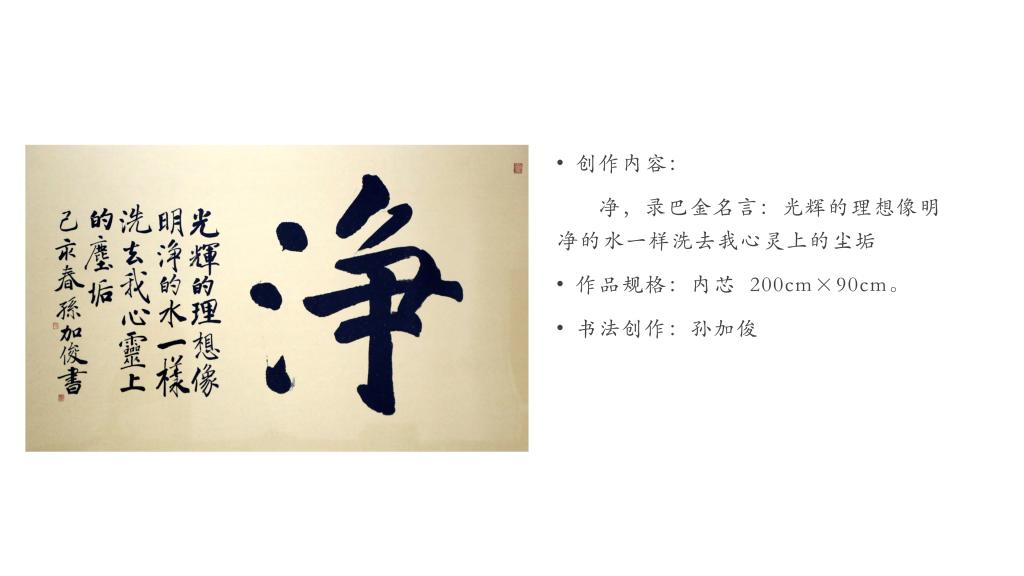 净
光輝的理想像
明净的水一樣
洗去我心靈上
的塵垢
己亥春孫加俊書
• 创作内容：
净，录巴金名言：光辉的理想像明
净的水一样洗去我心灵上的尘垢
• 作品规格：内芯 200cm×90cm。
• 书法创作：孙加俊